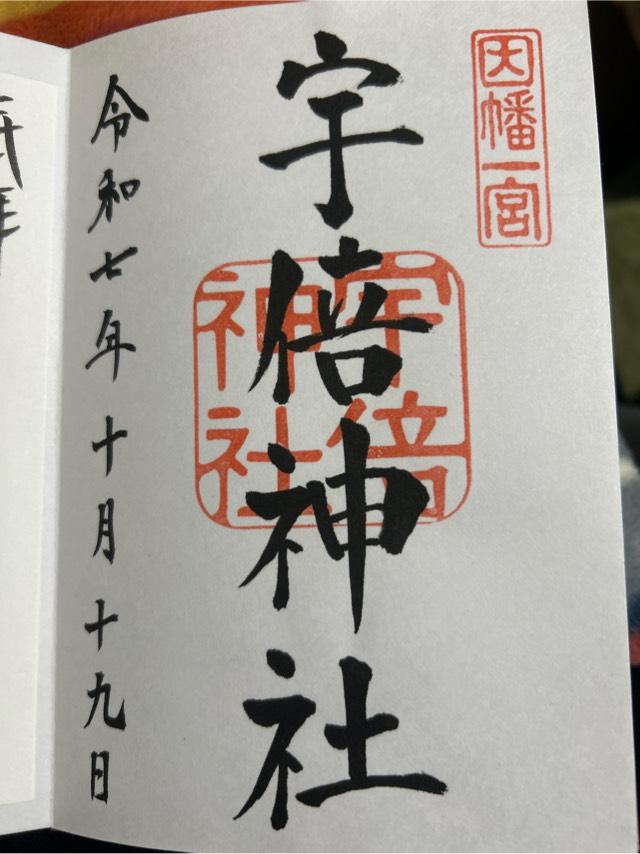 因幡一宮
宇倍神社
宇倍
神社
令和七年十月十九日